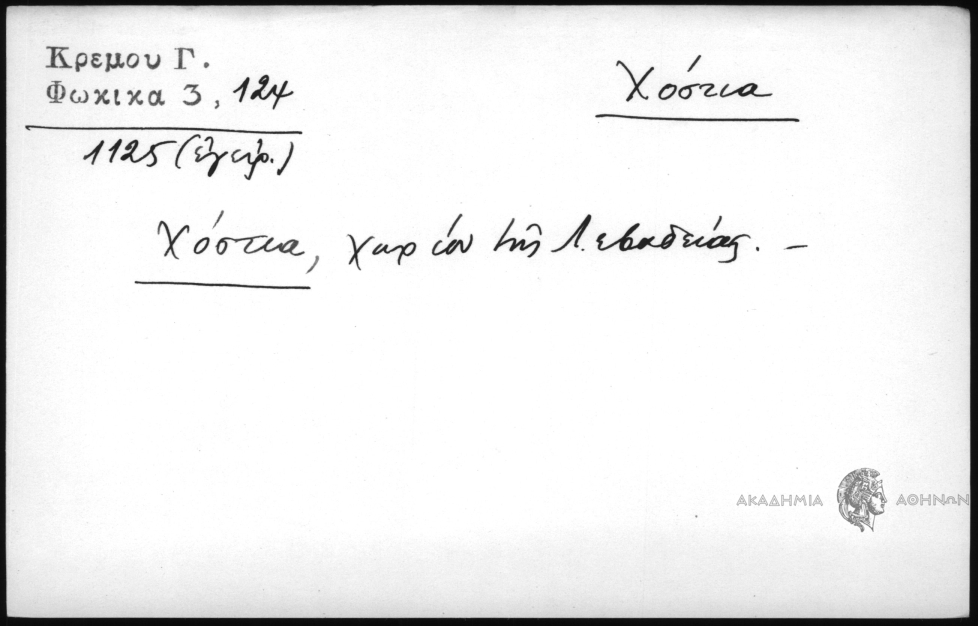 Κρεμου Γ.
Φωκικα 3, 124
Χόστια
1125 (ἔγειρ.)
Χόστια, χωρίον τῆς Λεβαδείας. –
ΑΚΑΔΗΜΙΑ ΑΘΗΝΩΝ